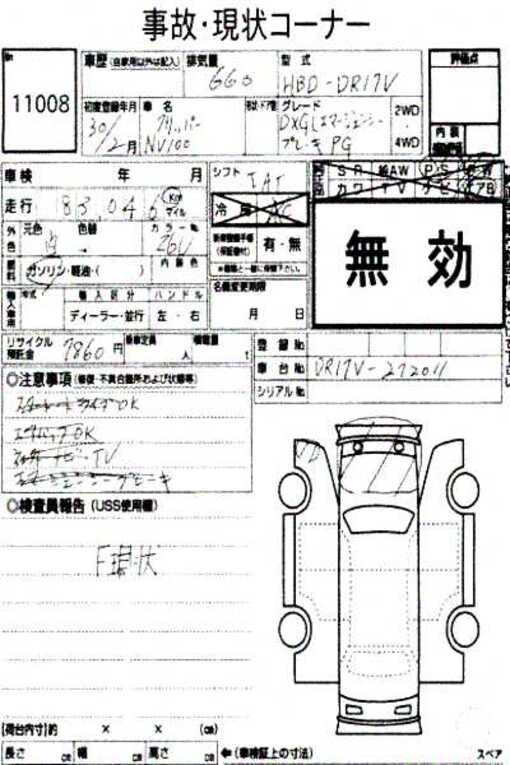 事故・現状コーナー
No
11008
車歴 (自家用以外は記入)
排気量 660
型式 HBD-DR17V
評価点
初度登録年月 30/2月
車名 クリッパー NV100
形状・ドア数
グレード DXGLエマージェンシーブレーキPG
2WD
・
4WD
内装
車検 年 月
シフト IAT
走行 83,046 Km マイル
冷房 AC
SR AW PS
カワ TV ナビ エアB
外色 元色 白 色替 → カラーNo 26U
新車整備手帳 (保証書付) 有・無
無効
燃料 ガソリン・軽油・( ) 内装色
名義変更期限 月 日
輸入車用 年式 輸入区分 ディーラー・並行 ハンドル 左・右
リサイクル預託金 7860円 乗車定員 人 積載量 t
登録No
車台No DR17V-272011
シリアルNo
◎注意事項 (修復・不具合箇所および状態等)
OK
エアバックOK
ナビ・TV
エマージェンシーブレーキ
◎検査員報告 (USS使用欄)
F現状
[荷台内寸]約 × × (cm)
長さ cm 幅 cm 高さ cm
←(車検証上の寸法)
スペア